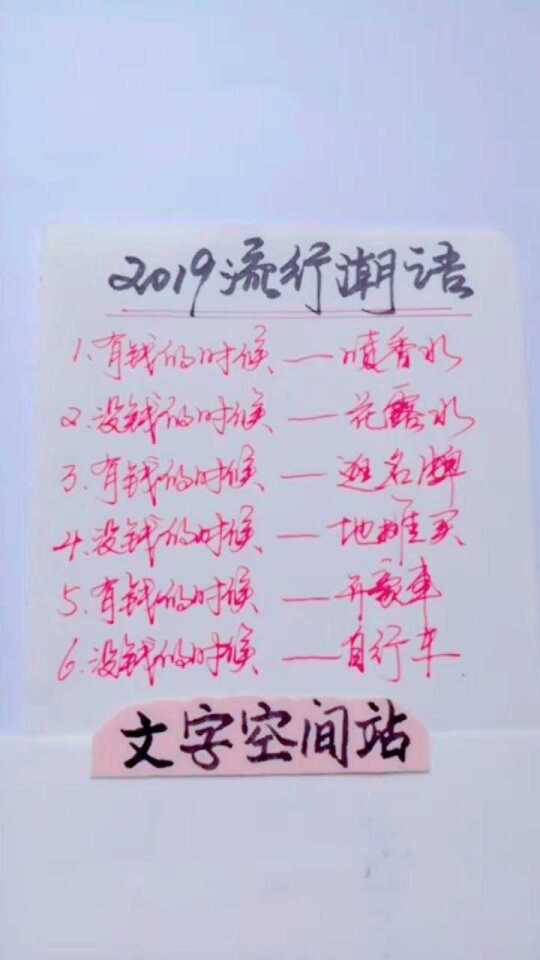 2019流行潮语
1.有钱的时候——喷香水
2.没钱的时候——花露水
3.有钱的时候——逛名牌
4.没钱的时候——地摊买
5.有钱的时候——开豪车
6.没钱的时候——自行车
文字空间站